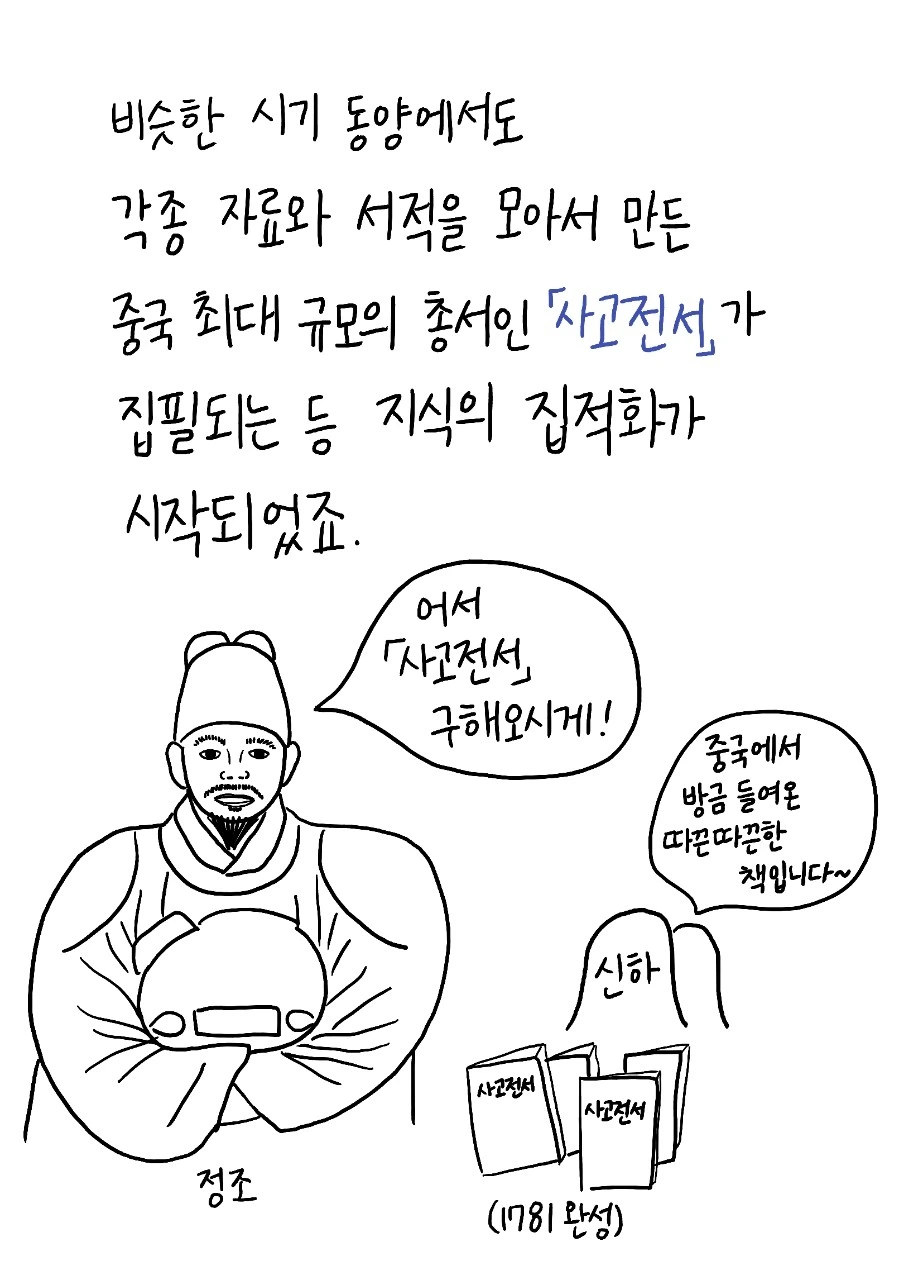 비슷한 시기 동양에서도
각종 자료와 서적을 모아서 만든
중국 최대 규모의 총서인 「사고전서」가
집필되는 등 지식의 집적화가
시작되었죠.
어서
「사고전서」
구해오시게!
중국에서
방금 들여온
따끈따끈한
책입니다~
신하
사고전서
사고전서
정조
(1781 완성)